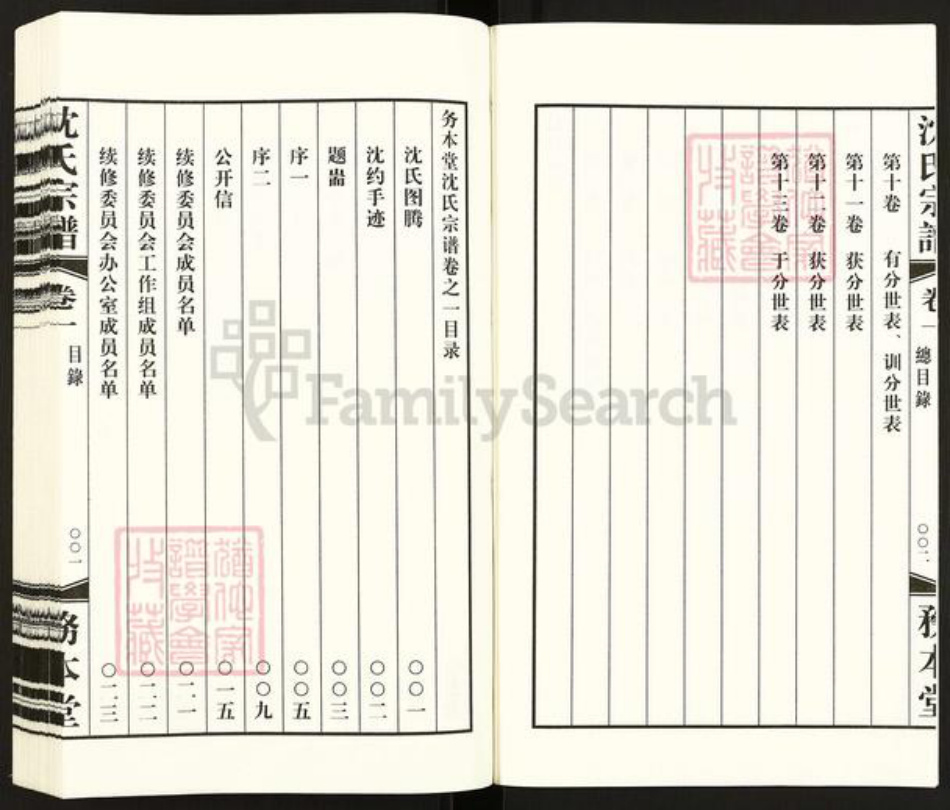 沈氏宗譜
卷一
總目錄
〇〇二
務本堂
第十卷 有分世表、训分世表
第十一卷 获分世表
第十二卷 获分世表
第十三卷 于分世表
务本堂沈氏宗谱卷之一目录
沈氏图腾 〇〇一
沈约手迹 〇〇二
题耑 〇〇三
序一 〇〇五
序二 〇〇九
公开信 〇一五
续修委员会成员名单 〇二一
续修委员会工作组成员名单 〇二二
续修委员会办公室成员名单 〇二三
沈氏宗譜
卷一
目錄
〇〇一
務本堂
FamilySearch